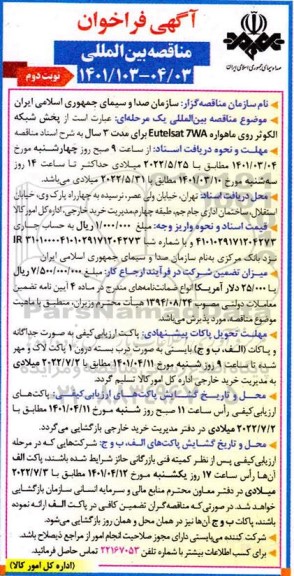 آگهی فراخوان
مناقصه بین المللی
۱۴۰۱/۱۰۳-۰۴/۰۳
نوبت دوم
صدا و سیمای جمهوری اسلامی ایران
نام سازمان مناقصه‌گزار: سازمان صدا و سیمای جمهوری اسلامی ایران
موضوع مناقصه بین‌المللی یک مرحله‌ای: عبارت است از پخش شبکه
الکوثر روی ماهواره Eutelsat 7WA برای مدت ۳ سال به شرح اسناد مناقصه
مهلت و نحوه دریافت اسناد: از ساعت ۹ صبح روز چهارشنبه مورخ
۱۴۰۱/۰۳/۰۴ مطابق با ۲۰۲۲/۵/۲۵ میلادی حداکثر تا ساعت ۱۴ روز
سه‌شنبه مورخ ۱۴۰۱/۰۳/۱۰ مطابق با ۲۰۲۲/۵/۳۱ میلادی می‌باشد.
محل دریافت اسناد: تهران، خیابان ولی عصر، نرسیده به چهارراه پارک وی، خیابان
استقلال، ساختمان اداری جام جم، طبقه چهارم، مدیریت خرید خارجی، اداره کل امور کالا
قیمت اسناد و نحوه واریز وجه: مبلغ ۱/۰۰۰/۰۰۰ ریال به حساب جاری
۴۱۰۱۰۲۹۱۷۱۲۰۴۲۷۳ و با شماره شبا
نزد بانک مرکزی به‌نام سازمان صدا و سیمای جمهوری اسلامی ایران
میزان تضمین شرکت در فرآیند ارجاع کار: مبلغ ۷/۵۰۰/۰۰۰/۰۰۰ ریال
یا ۲۵/۰۰۰ دلار آمریکا انواع ضمانت‌نامه‌های مندرج در ماده ۴ آیین نامه تضمین
معاملات دولتی مصوب ۱۳۹۴/۰۸/۲۴ هیأت محترم وزیران، منطبق با ماهیت
موضوع مناقصه، مورد پذیرش می‌باشد.
مهلت تحویل پاکات پیشنهادی: پاکت ارزیابی کیفی به صورت جداگانه
و پاکات (الف، ب و ج) بایستی به صورت درب بسته درون ۱ پاکت لاک و مهر
شده تا ساعت ۹ روز شنبه مورخ ۱۴۰۱/۰۴/۱۱ مطابق با ۲۰۲۲/۷/۲ میلادی
به مدیریت خرید خارجی اداره کل امور کالا تسلیم گردد.
محل و تاریخ گشایش پاکت‌های ارزیابی کیفی: پاکت‌های
ارزیابی کیفی رأس ساعت ۱۱ صبح روز شنبه مورخ ۱۴۰۱/۰۴/۱۱ مطابق با
۲۰۲۲/۷/۲ میلادی در دفتر مدیریت خرید خارجی بازگشایی می‌گردد.
محل و تاریخ گشایش پاکت‌های الف، ب و ج: شرکت‌هایی که در مرحله
ارزیابی کیفی پس از نظر کمیته فنی بازرگانی حائز شرایط شده باشند، پاکت الف
آن‌ها رأس ساعت ۱۷ روز یکشنبه مورخ ۱۴۰۱/۰۴/۱۲ مطابق با ۲۰۲۲/۷/۳
میلادی در دفتر معاون محترم منابع مالی و سرمایه انسانی سازمان بازگشایی
خواهد شد. در صورتی که مناقصه‌گران تضمین کافی در پاکت الف ارائه نموده
باشند، پاکات ب و ج آن‌ها نیز در همان محل و همان روز بازگشایی می‌شود.
شرکت کننده می‌بایستی دارای مجوز صلاحیت انجام امور از مراجع ذیصلاح باشد.
برای کسب اطلاعات بیشتر با شماره تلفن ۲۲۱۶۷۰۵۳ تماس حاصل فرمائید.
(اداره کل امور کالا)